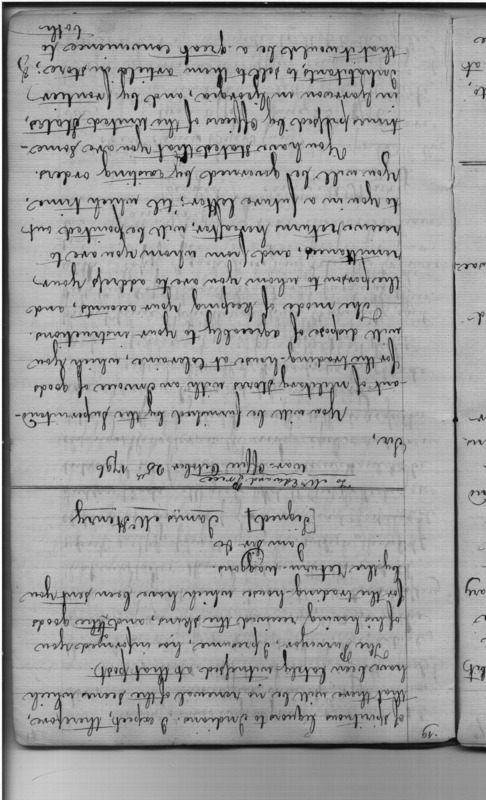 19.
of spirituous liquors to Indians. I expect, therefore,
that there will be no renewal of the scenes which
have been lately witnessed at that post.
The Purveyor, I presume, has informed you
of his having received the skins, and the goods
for the trading-house which have been sent you
by the return-waggons.
I am Sir &c
[Signed] James McHenry
To Mr Edward Price
War-Office October 28th 1796
Sir,
You will be furnished by the Superintend-
ant of Military Stores with an Invoice of goods
for the trading-house at Coleraine, which you
will dispose of agreeably to your instructions.
The mode of keeping your accounts, and
the person to whom you are to address your
remittances, and from whom you are to
receive returns hereafter, will be pointed out
to you in a future letter; 'till which time,
you will be governed by existing orders.
You have stated that you are some-
times pressed by Officers of the United States,
in Garrison in Georgia, and by frontier
Inhabitants to sell to them articles in store; &
that it would be a great convenience to
both